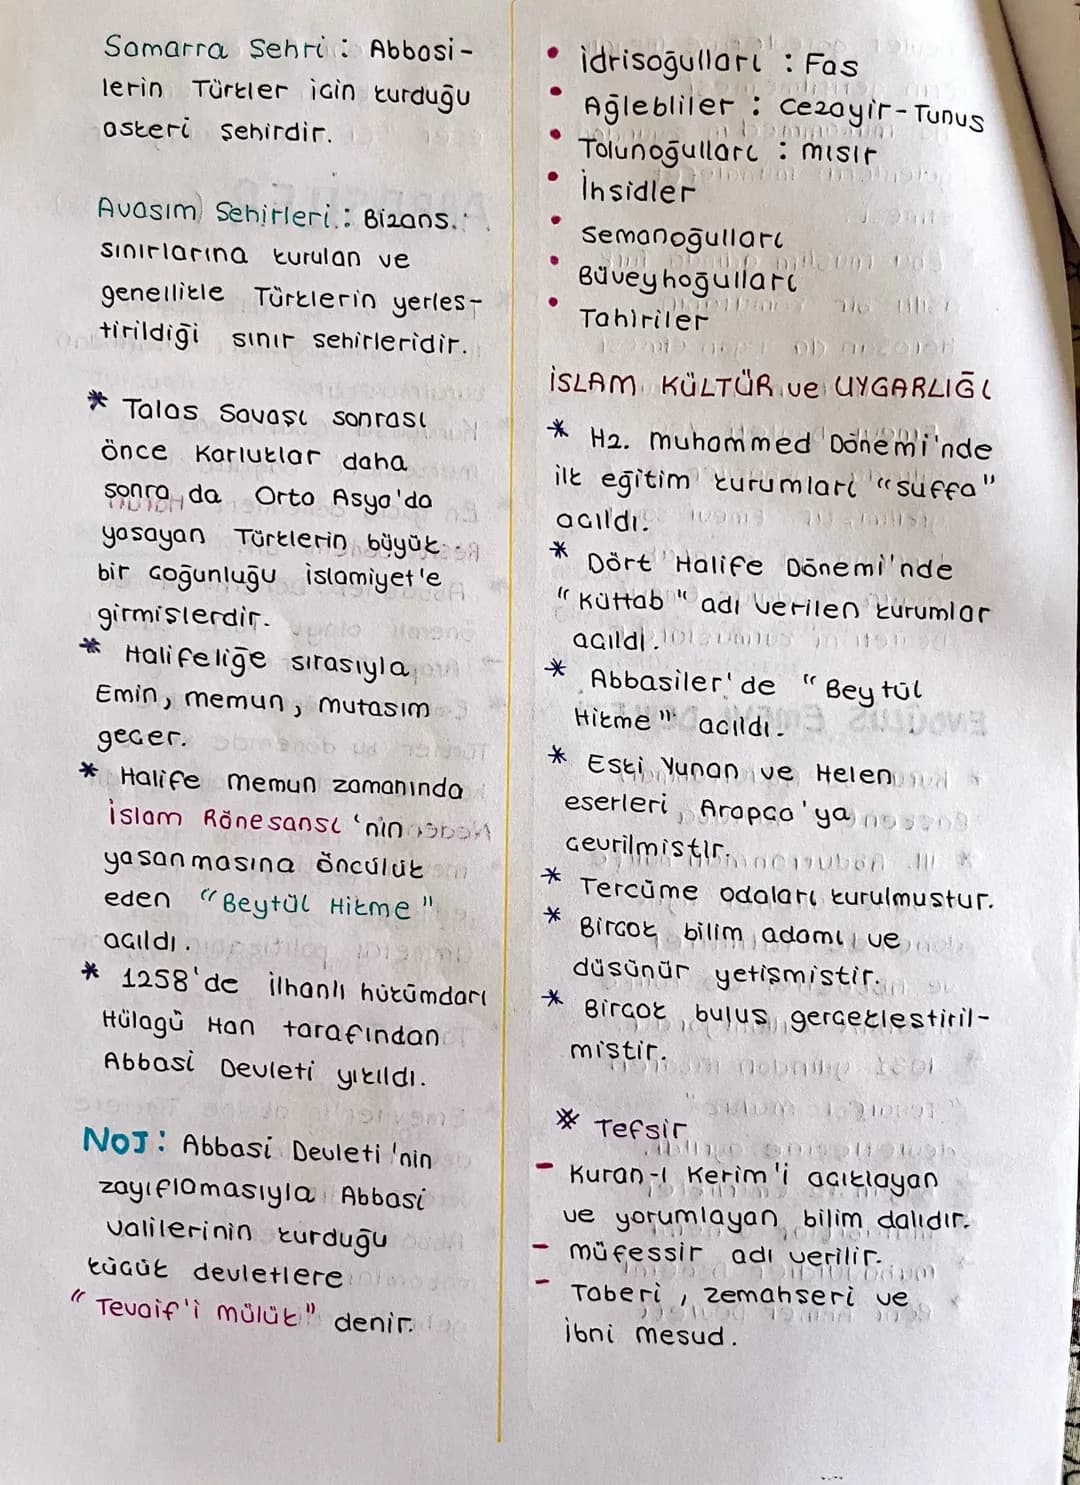 Samarra Şehri : Abbasi-
lerin Türkler için kurduğu
askeri şehirdir.
Avasım Şehirleri : Bizans
sınırlarına kurulan ve
genellikle Türklerin yerleş-
tirildiği sınır şehirleridir.
* Talas Savaşı sonrası
önce Karluklar daha
sonra da Orta Asya'da
yaşayan Türklerin büyük
bir çoğunluğu islamiyet'e
girmişlerdir.
* Halifeliğe sırasıyla
Emin, memun, mutasım
geçer.
* Halife memun zamanında
İslam Rönesansı 'nin
yaşanmasına öncülük
eden "Beytül Hikme"
açıldı.
* 1258'de ilhanlı hükümdarı
Hülagü Han tarafından
Abbasi Devleti yıkıldı.
NOT: Abbasi Devleti 'nin
zayıflamasıyla Abbasi
valilerinin kurduğu
küçük devletlere
"Tevaif'i mülük" denir.
• İdrisoğulları : Fas
• Ağlebliler : Cezayir-Tunus
• Tolunoğulları : mısır
• İhşidler
• Semanoğulları
• Büveyhoğulları
• Tahiriler
İSLAM KÜLTÜR ve UYGARLIĞI
* Hz. muhammed Dönemi'nde
ilk eğitim kurumları "suffa"
açıldı.
* Dört Halife Dönemi'nde
"Küttab" adı verilen kurumlar
açıldı.
* Abbasiler'de "Beytül
Hikme" açıldı.
* Eski Yunan ve Helen
eserleri Arapça'ya
çevrilmiştir.
* Tercüme odaları kurulmuştur.
* Birçok bilim adamı ve
düşünür yetişmiştir.
* Birçok buluş gerçekleştiril-
miştir.
* Tefsir
- Kuran-ı Kerim'i açıklayan
ve yorumlayan bilim dalıdır.
- müfessir adı verilir.
- Taberi, zemahşeri ve
ibni mesud.